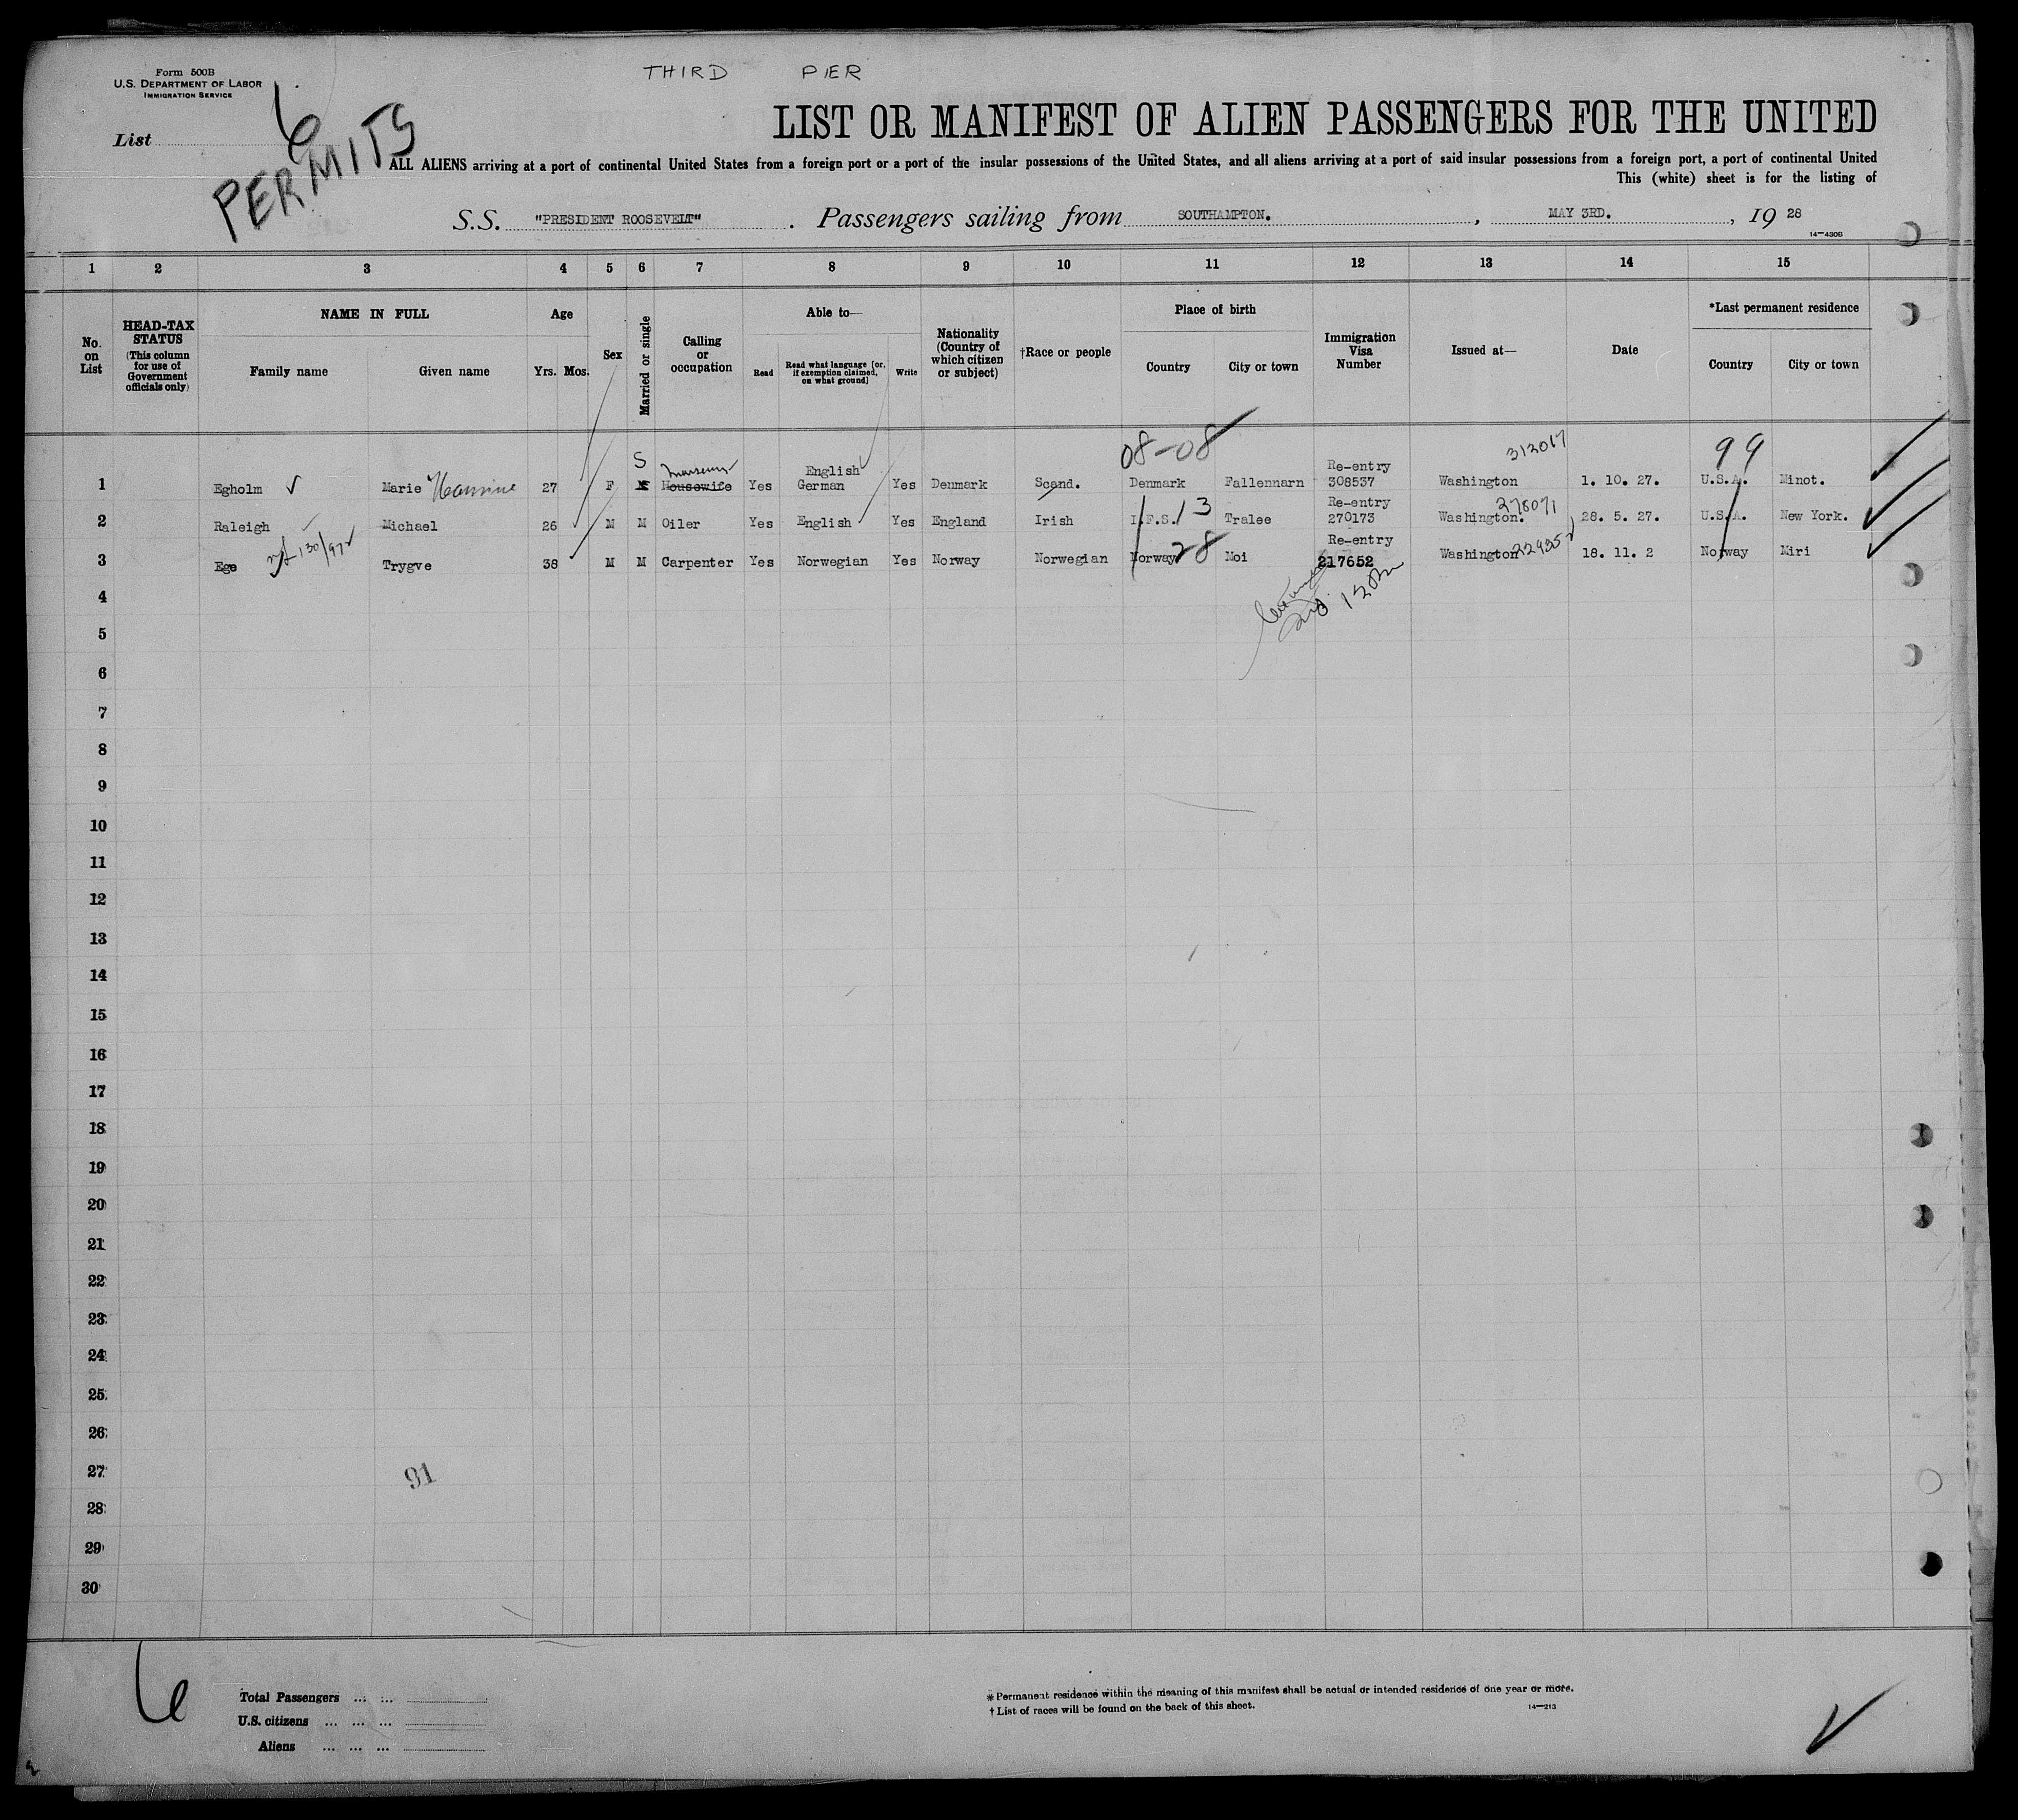 THIRD PER
Form 500B
U.S. DEPARTMENT OF LABOR
IMMIGRATION SERVICE
List 6
PERMITS
LIST OR MANIFEST OF ALIEN PASSENGERS FOR THE UNITED
ALL ALIENS arriving at a port of continental United States from a foreign port or a port of the insular possessions of the United States, and all aliens arriving at a port of said insular possessions from a foreign port, a port of continental United
This (white) sheet is for the listing of
S.S. "PRESIDENT ROOSEVELT" . Passengers sailing from SOUTHAMPTON. , MAY 3RD. , 19 28
14—430B
1 2 3 4 5 6 7 8 9 10 11 12 13 14 15
No. on List
HEAD-TAX STATUS (This column for use of Government officials only)
NAME IN FULL
Family name Given name
Age
Yrs. Mos.
Sex
Married or single
Calling or occupation
Able to—
Read Read what language [or, if exemption claimed, on what ground] Write
Nationality (Country of which citizen or subject)
†Race or people
Place of birth
Country City or town
Immigration Visa Number
Issued at—
Date
*Last permanent residence
Country City or town
08-08 312017 99
S English Re-entry
1 Egholm Marie 27 F Housewife Yes German Yes Denmark Scand. Denmark Fallennarn 308537 Washington 1. 10. 27. U.S.A. Minot.
Re-entry 278071
2 Raleigh Michael 26 M M Oiler Yes English Yes England Irish I.F.S. 13 Tralee 270173 Washington. 28. 5. 27. U.S.A. New York.
130/972 Re-entry
3 Ege Trygve 38 M M Carpenter Yes Norwegian Yes Norway Norwegian Norway 28 Moi 217652 Washington 18. 11. 2 Norway Miri
4
5
6
7
8
9
10
11
12
13
14
15
16
17
18
19
20
21
22
23
24
25
26
27
91
28
29
30
6
Total Passengers ... ...
U.S. citizens ... ... ...
Aliens ... ... ...
*Permanent residence within the meaning of this manifest shall be actual or intended residence of one year or more.
†List of races will be found on the back of this sheet.
14—213